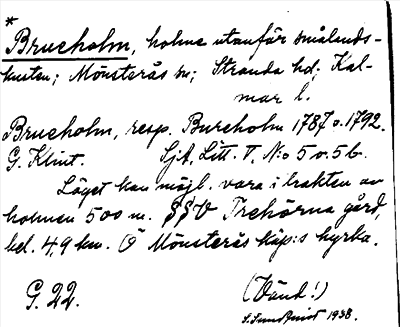 *
Brueholm, holme utanför smålands-
kusten; Mönsterås sn; Stranda hd; Kal-
mar l.
Brueholm, resp. Bureholm 1787 o. 1792.
G. Klint. Sjk. Litt. V. No 5 o. 5b.
Läget kan möjl. vara i trakten av
holmen 500 m. SSV Trehörna gård,
bel. 4,9 km. Ö Mönsterås köp:s kyrka.
G. 22. (Vänd!)
1938.